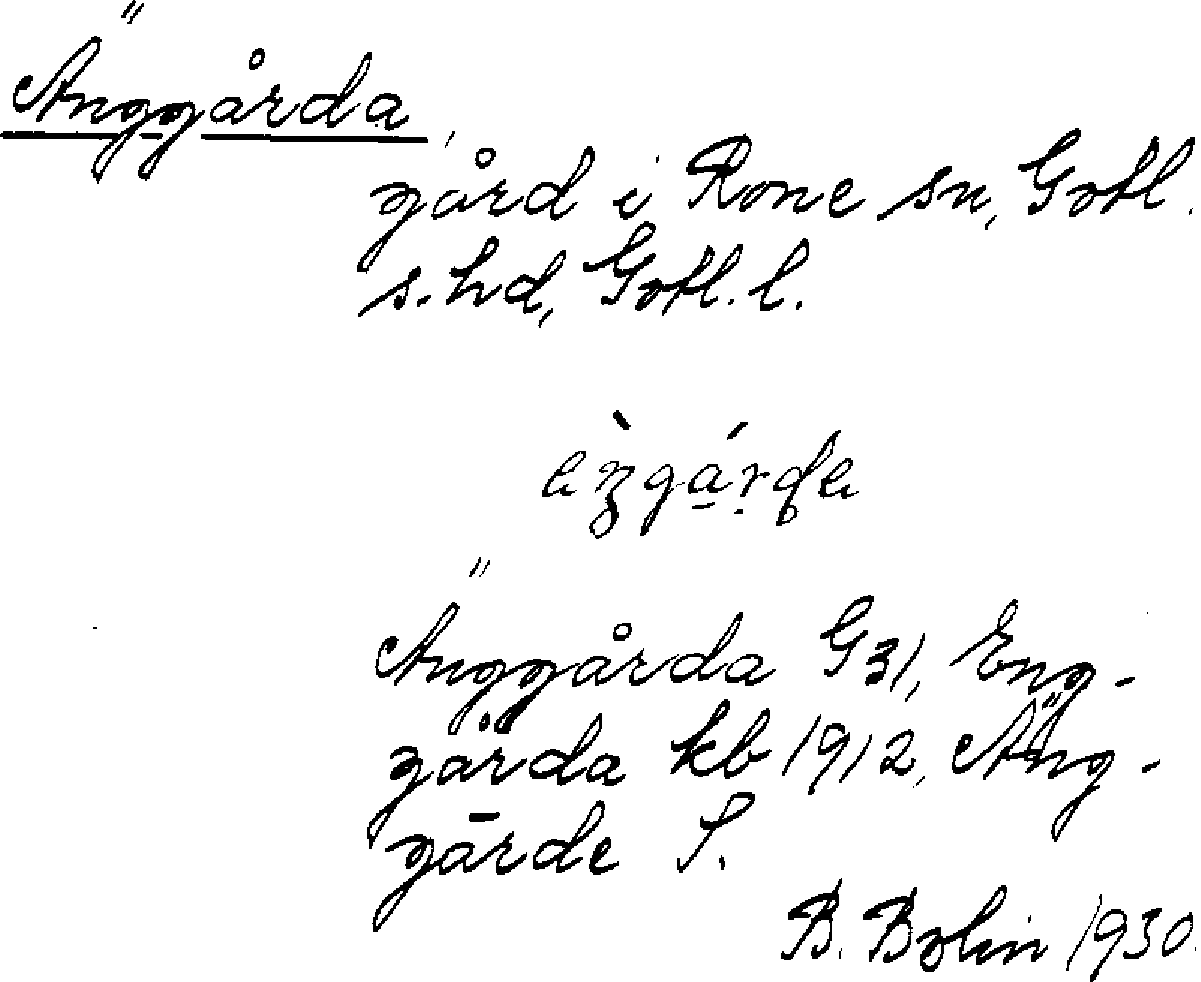 Änggårda,
gård i Rone sn, Gotl.
s. hd, Gotl. l.
Änggårda G31, Eng-
gärda kb 1912, Äng-
gärde S.
B. Bolin 1930.